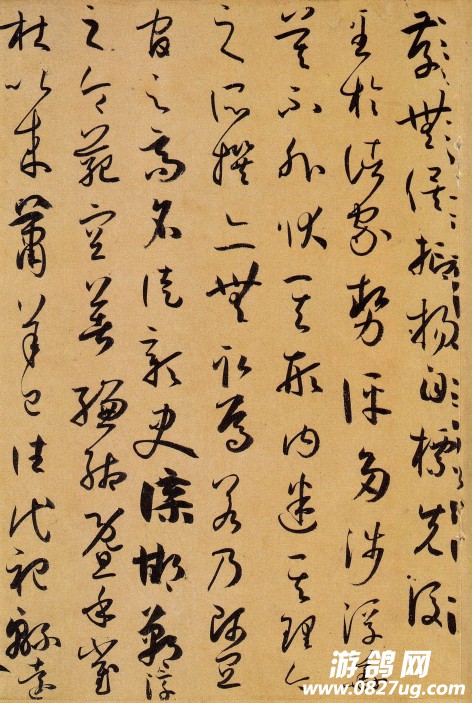 無俟抑揚自標先後
至於諸家勢評多涉浮華
莫不外狀其形內迷其理今
之所撰亦無取焉若乃師宜
官之高名徒彰史牒邯鄲淳
之令範空著縑緗暨乎崔
杜以來蕭羊已往代祀綿遠
游鸽网
www.0827ug.com